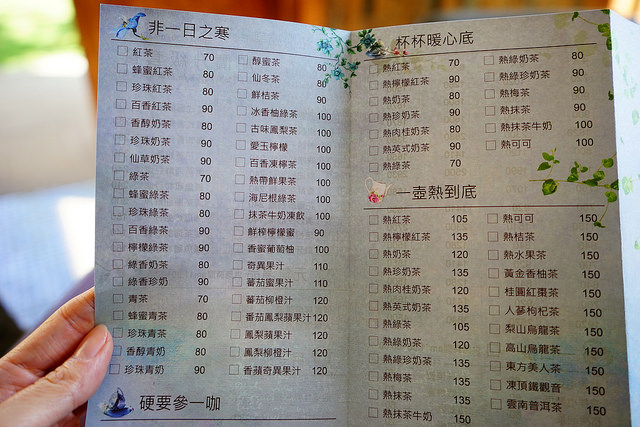 非一日之寒
紅茶 70
蜂蜜紅茶 80
珍珠紅茶 80
百香紅茶 90
香醇奶茶 80
珍珠奶茶 90
仙草奶茶 90
綠茶 70
蜂蜜綠茶 80
珍珠綠茶 80
百香綠茶 90
檸檬綠茶 90
綠香奶茶 80
綠香珍奶 90
青茶 70
蜂蜜青茶 80
珍珠青茶 80
香醇青奶 80
珍珠青奶 90
醇蜜茶 80
仙冬茶 80
鮮桔茶 90
冰香柚綠茶 100
古味鳳梨茶 100
愛玉檸檬 100
百香凍檸茶 100
熱帶鮮果茶 100
海尼根綠茶 100
抹茶牛奶凍飲 100
鮮榨檸檬蜜 90
香蜜葡萄柚 100
奇異果汁 110
蕃茄蜜果汁 110
蕃茄柳橙汁 120
番茄鳳梨蘋果汁 120
鳳梨蘋果汁 120
鳳梨柳橙汁 120
香蘋奇異果汁 120
硬要參一咖
杯杯暖心底
熱紅茶 70
熱檸檬紅茶 90
熱奶茶 80
熱珍奶茶 90
熱肉桂奶茶 80
熱英式奶茶 90
熱綠茶 70
熱綠奶茶 80
熱綠珍奶茶 90
熱梅茶 90
熱抹茶 90
熱抹茶牛奶 100
熱可可 100
一壺熱到底
熱紅茶 105
熱檸檬紅茶 135
熱奶茶 120
熱珍奶茶 135
熱肉桂奶茶 120
熱英式奶茶 135
熱綠茶 105
熱綠奶茶 120
熱綠珍奶茶 135
熱梅茶 135
熱抹茶 135
熱抹茶牛奶 150
熱可可 150
熱桔茶 150
熱水果茶 150
黃金香柚茶 150
桂圓紅棗茶 150
人蔘枸杞茶 150
梨山烏龍茶 150
高山烏龍茶 150
東方美人茶 150
凍頂鐵觀音 150
雲南普洱茶 150